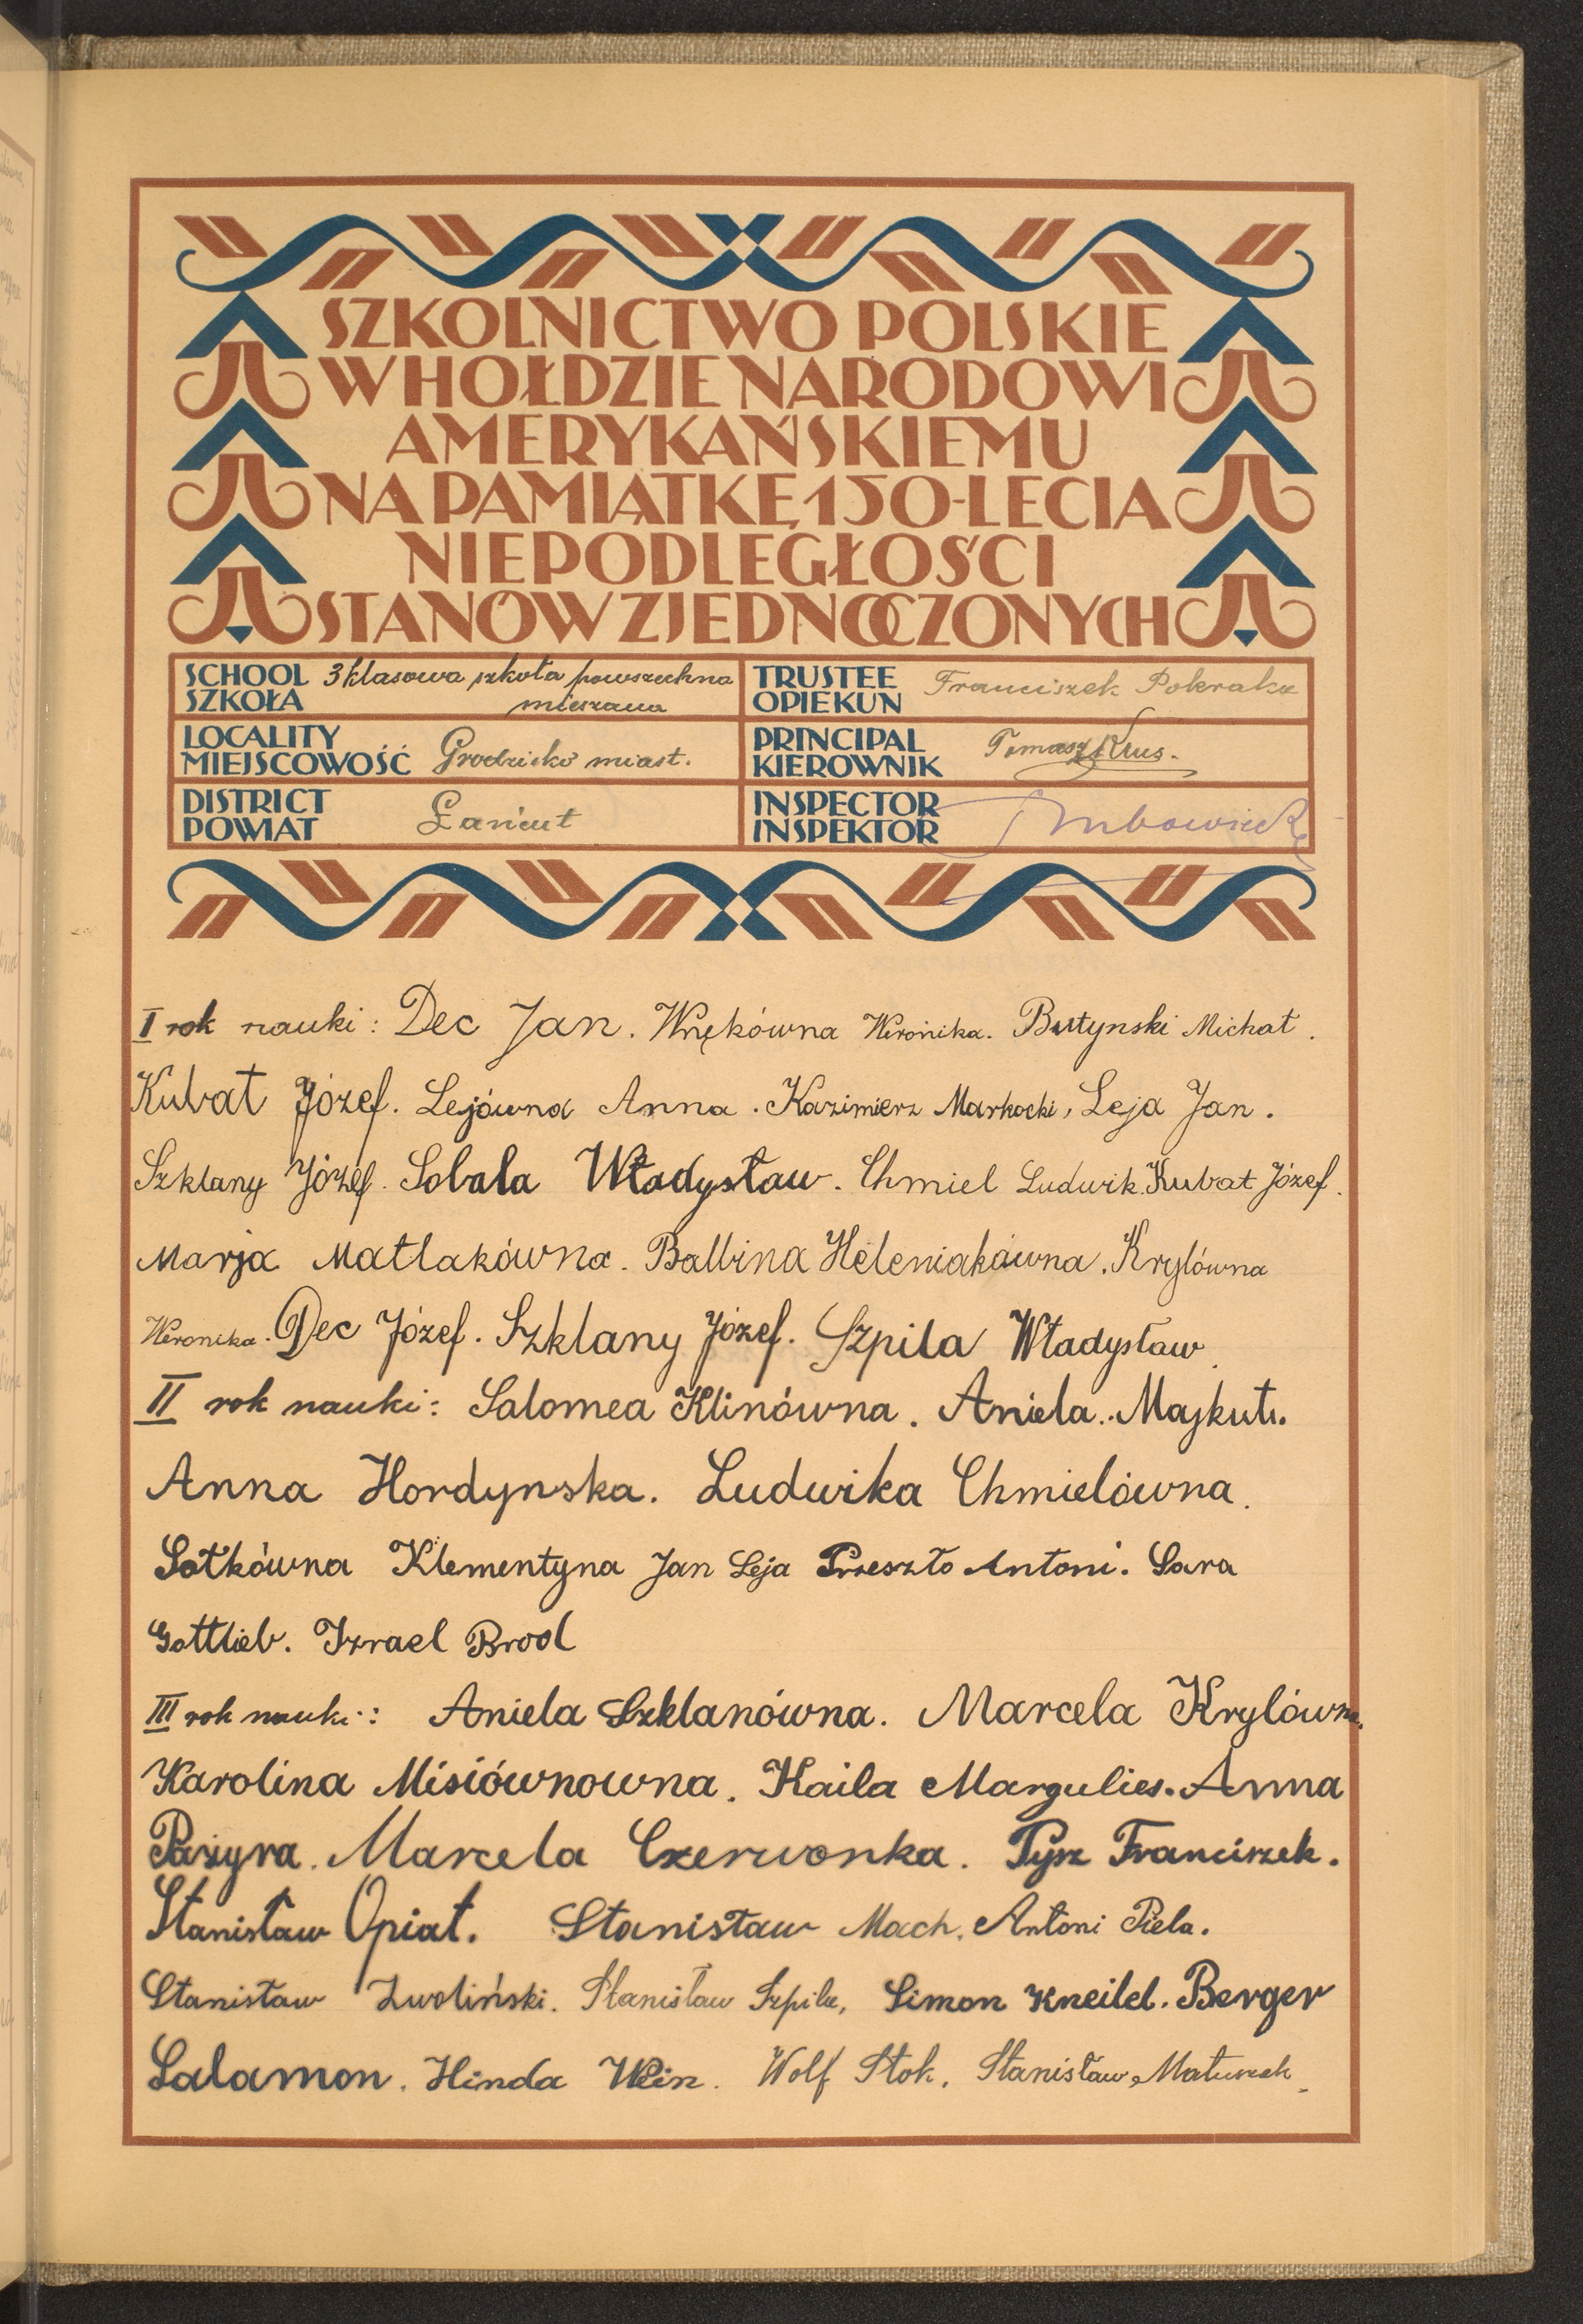 SZKOLNICTWO POLSKIE
W HOŁDZIE NARODOWI
AMERYKAŃSKIEMU
NA PAMIĄTKĘ 150-LECIA
NIEPODLEGŁOŚCI
STANÓW ZJEDNOCZONYCH
SCHOOL SZKOŁA 3 klasowa szkoła powszechna mieszana
TRUSTEE OPIEKUN Franciszek Pokraka
LOCALITY MIEJSCOWOŚĆ Grodzisko miast.
PRINCIPAL KIEROWNIK Tomasz Krus.
DISTRICT POWIAT Łańcut
INSPECTOR INSPEKTOR
I rok nauki: Dec Jan. Wnękówna Weronika. Butynski Michał.
Kubat Józef. Lejówna Anna. Kazimierz Markocki, Leja Jan.
Szklany Józef. Sobala Władysław. Chmiel Ludwik. Kubat Józef.
Marja Matlakówna. Balbina Heleniakówna. Krylówna
Weronika. Dec Józef. Szklany Józef. Szpila Władysław.
II rok nauki: Salomea Klinówna. Aniela Majkut.
Anna Hordynska. Ludwika Chmielówna.
Sotkówna Klementyna Jan Leja Przeszło Antoni. Sara
Gottlieb. Izrael Brod
III rok nauki: Aniela Szklanówna. Marcela Krylówna.
Karolina Misiównowna. Kaila Margulies. Anna
Pazyra. Marcela Czerwonka. Pysz Franciszek.
Stanisław Opiat. Stanisław Mach. Antoni Piela.
Stanisław Zwoliński. Stanisław Szpila, Simon Kneilel. Berger
Salamon. Hinda Wein. Wolf Stok. Stanisław Matuszek